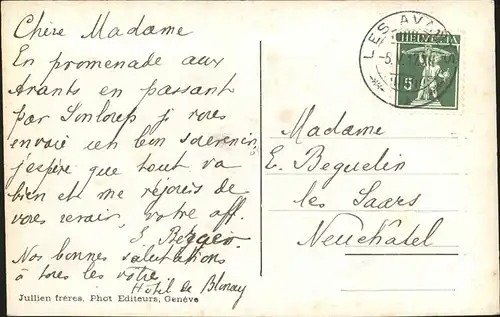 Chère Madame
En promenade aux
Avants en passant
par Sonloup je vous
envoie un bon souvenir,
j'espère que tout va
bien et me réjouis de
vous revoir, votre aff.
S. Berger.
Nos bonnes salutations
à tous les vôtres
Hôtel de Blonay
Jullien frères, Phot Editeurs, Genève
LES AVANTS
HELVETIA
5
Madame
E. Beguelin
les Saars
Neuchâtel